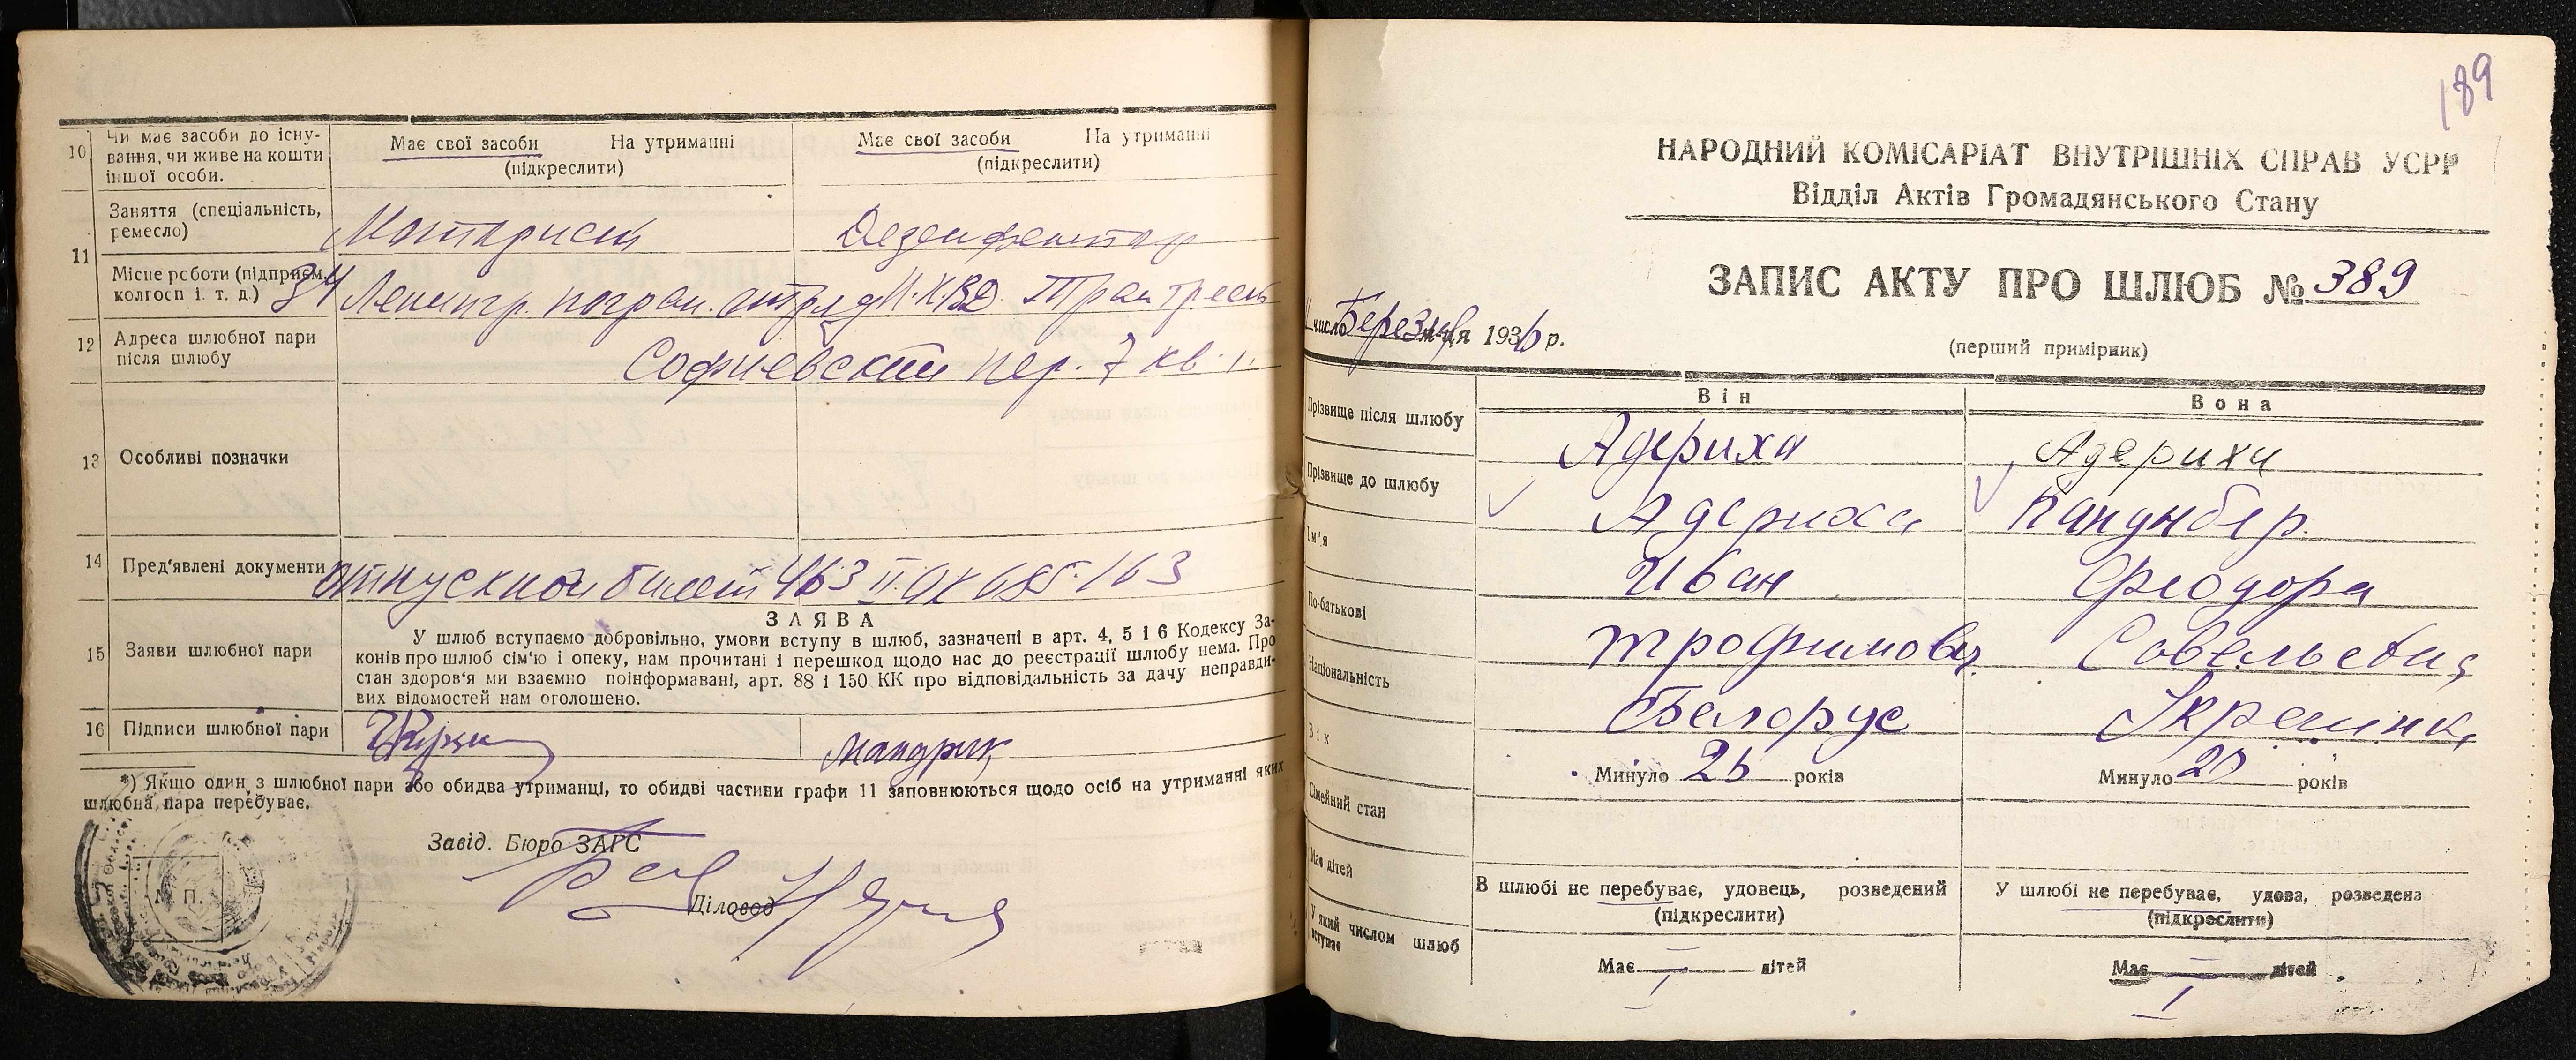 10 Чи має засоби до існу-
вання, чи живе на кошти
іншої особи.
Має свої засоби На утриманні
(підкреслити)
Має свої засоби На утриманні
(підкреслити)
11 Заняття (спеціальність,
ремесло)
Моторист
Дезенфектор
Місце роботи (підприєм.
колгосп і. т. д.)
Ленингр. погран. отряд Н.КВД
12 Адреса шлюбної пари
після шлюбу
Софиевский пер. 7 кв. 1.
13 Особливі позначки
14 Пред'явлені документи
отпускной билет 463
15 Заяви шлюбної пари
ЗАЯВА
У шлюб вступаємо добровільно, умови вступу в шлюб, зазначені в арт. 4, 5 і 6 Кодексу За-
конів про шлюб сім'ю і опеку, нам прочитані і перешкод щодо нас до реєстрації шлюбу нема. Про
стан здоров'я ми взаємно поінформавані, арт. 88 і 150 КК про відповідальність за дачу неправди-
вих відомостей нам оголошено.
16 Підписи шлюбної пари
*) Якщо один з шлюбної пари або обидва утриманці, то обидві частини графи 11 заповнюються щодо осіб на утриманні яких
шлюбна пара перебуває.
Завід. Бюро ЗАГС
М. П.
Діловод
189
НАРОДНИЙ КОМІСАРІАТ ВНУТРІШНІХ СПРАВ УСРР
Відділ Актів Громадянського Стану
ЗАПИС АКТУ ПРО ШЛЮБ № 389
число Березня м-ця 1936 р.
(перший примірник)
Він
Вона
Прізвище після шлюбу
Адериха
Адериха
Прізвище до шлюбу
Адериха
Ім'я
Иван
Феодора
По-батькові
Трофимович
Савельевна
Національність
Белорус
Украинка
Вік
Минуло 26 років
Минуло років
Сімейний стан
В шлюбі не перебуває, удовець, розведений
(підкреслити)
У шлюбі не перебуває, удова, розведена
(підкреслити)
Має дітей
Має — дітей
Має — дітей
У який числом шлюб
вступає
I
I